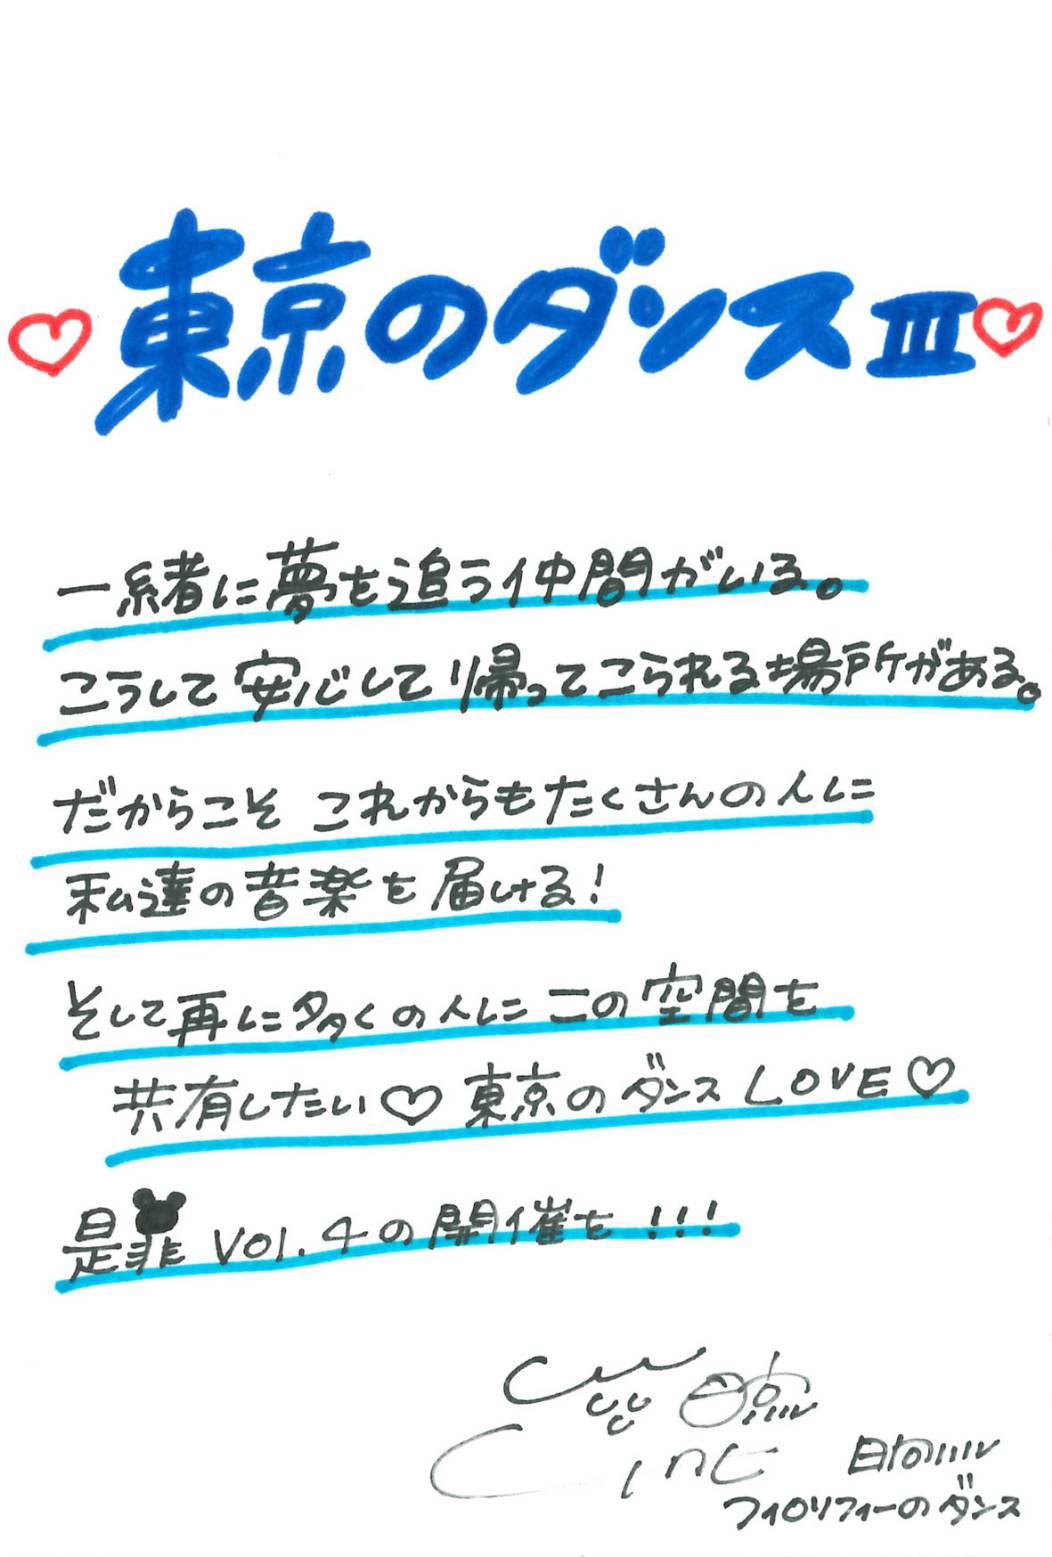 ♡東京のダンスIII♡
一緒に夢を追う仲間がいる。
こうして安心して帰ってこられる場所がある。
だからこそ これからもたくさんの人に
私達の音楽を届ける!
そして再に多くの人に この空間を
共有したい♡東京のダンスLOVE♡
是非 Vol.4の開催を!!!
日向ハル
フィロソフィーのダンス